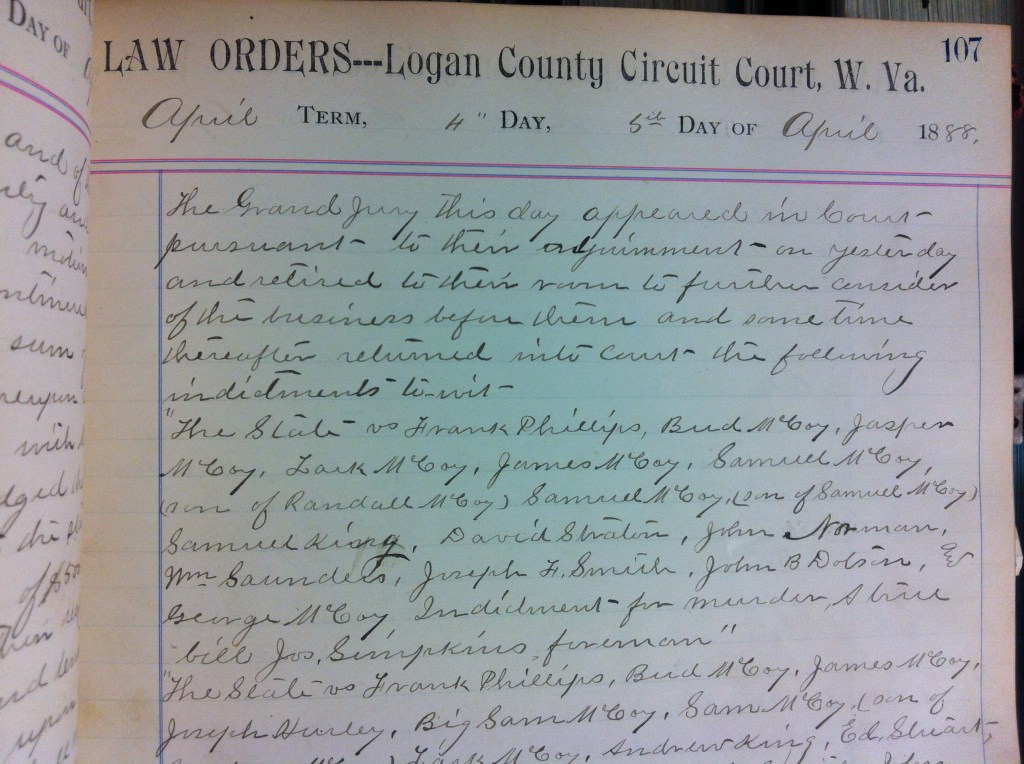 DAY OF
LAW ORDERS---Logan County Circuit Court, W. Va. 107
April TERM, 4" DAY, 5th DAY OF April 1888.
The Grand Jury this day appeared in Court
pursuant to their adjurnment on yesterday
and retired to their room to further consider
of the business before them and some time
thereafter returned into Court the following
indictments to-wit
"The State vs Frank Phillips, Bud McCoy, Jasper
McCoy, Lark McCoy, James McCoy, Samuel McCoy,
(son of Randall McCoy) Samuel McCoy, (son of Samuel McCoy)
Samuel King, David Straton, John Norman,
Wm Saunders, Joseph F. Smith, John B Dotson, &
George McCoy Indictment for murder, A true
bill Jos. Simpkins, foreman"
"The State vs Frank Phillips, Bud McCoy, James McCoy,
Joseph Hurley, Big Sam McCoy, Sam McCoy, (son of
McCoy) Lark McCoy, Andrew King, Ed. Stuart,
and of
with
of $500
upon